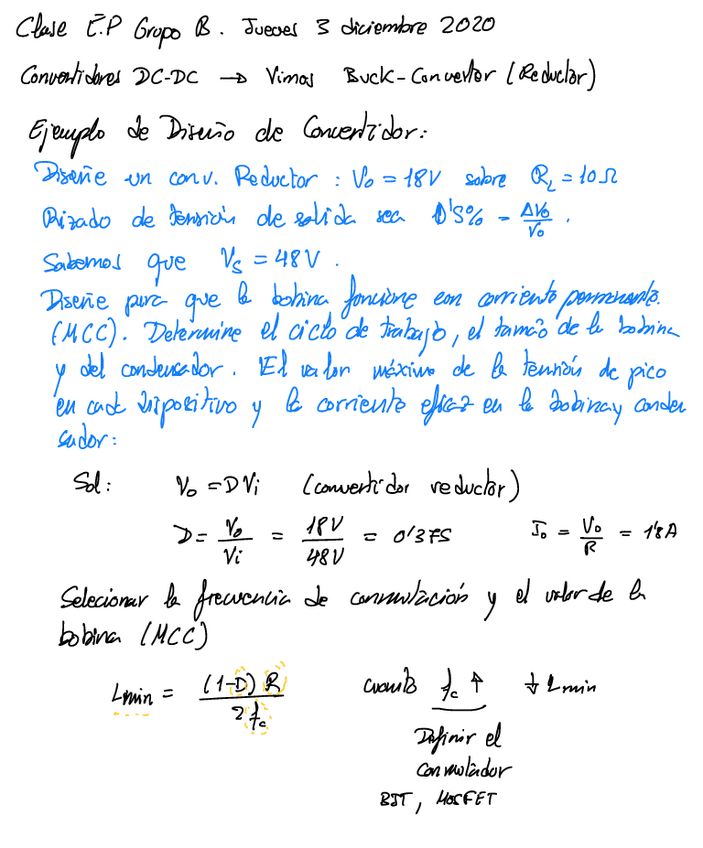 Clase E.P Grupo B. Jueves 3 diciembre 2020
Convertidores DC-DC → Vimos Buck-Convertor (Reductor)
Ejemplo de Diseño de Convertidor:
Diseñe un conv. Reductor : Vo = 18V sobre RL = 10Ω
Rizado de tensión de salida sea 0'5% = ΔVo/Vo .
Sabemos que Vs = 48V .
Diseñe para que la bobina funcione con corriente permanente.
(MCC). Determine el ciclo de trabajo, el tamaño de la bobina
y del condensador. El valor máximo de la tensión de pico
en cada dispositivo y la corriente eficaz en la bobina y conden
sador:
Sol: Vo = DVi (convertidor reductor)
D = Vo/Vi = 18V/48V = 0'375 Io = Vo/R = 1'8A
Selecionar la frecuencia de conmutación y el valor de la
bobina (MCC)
Lmin = (1-D) R / 2fc cuanto fc ↑ ↓ Lmin
Definir el
Conmutador
BJT, MOSFET